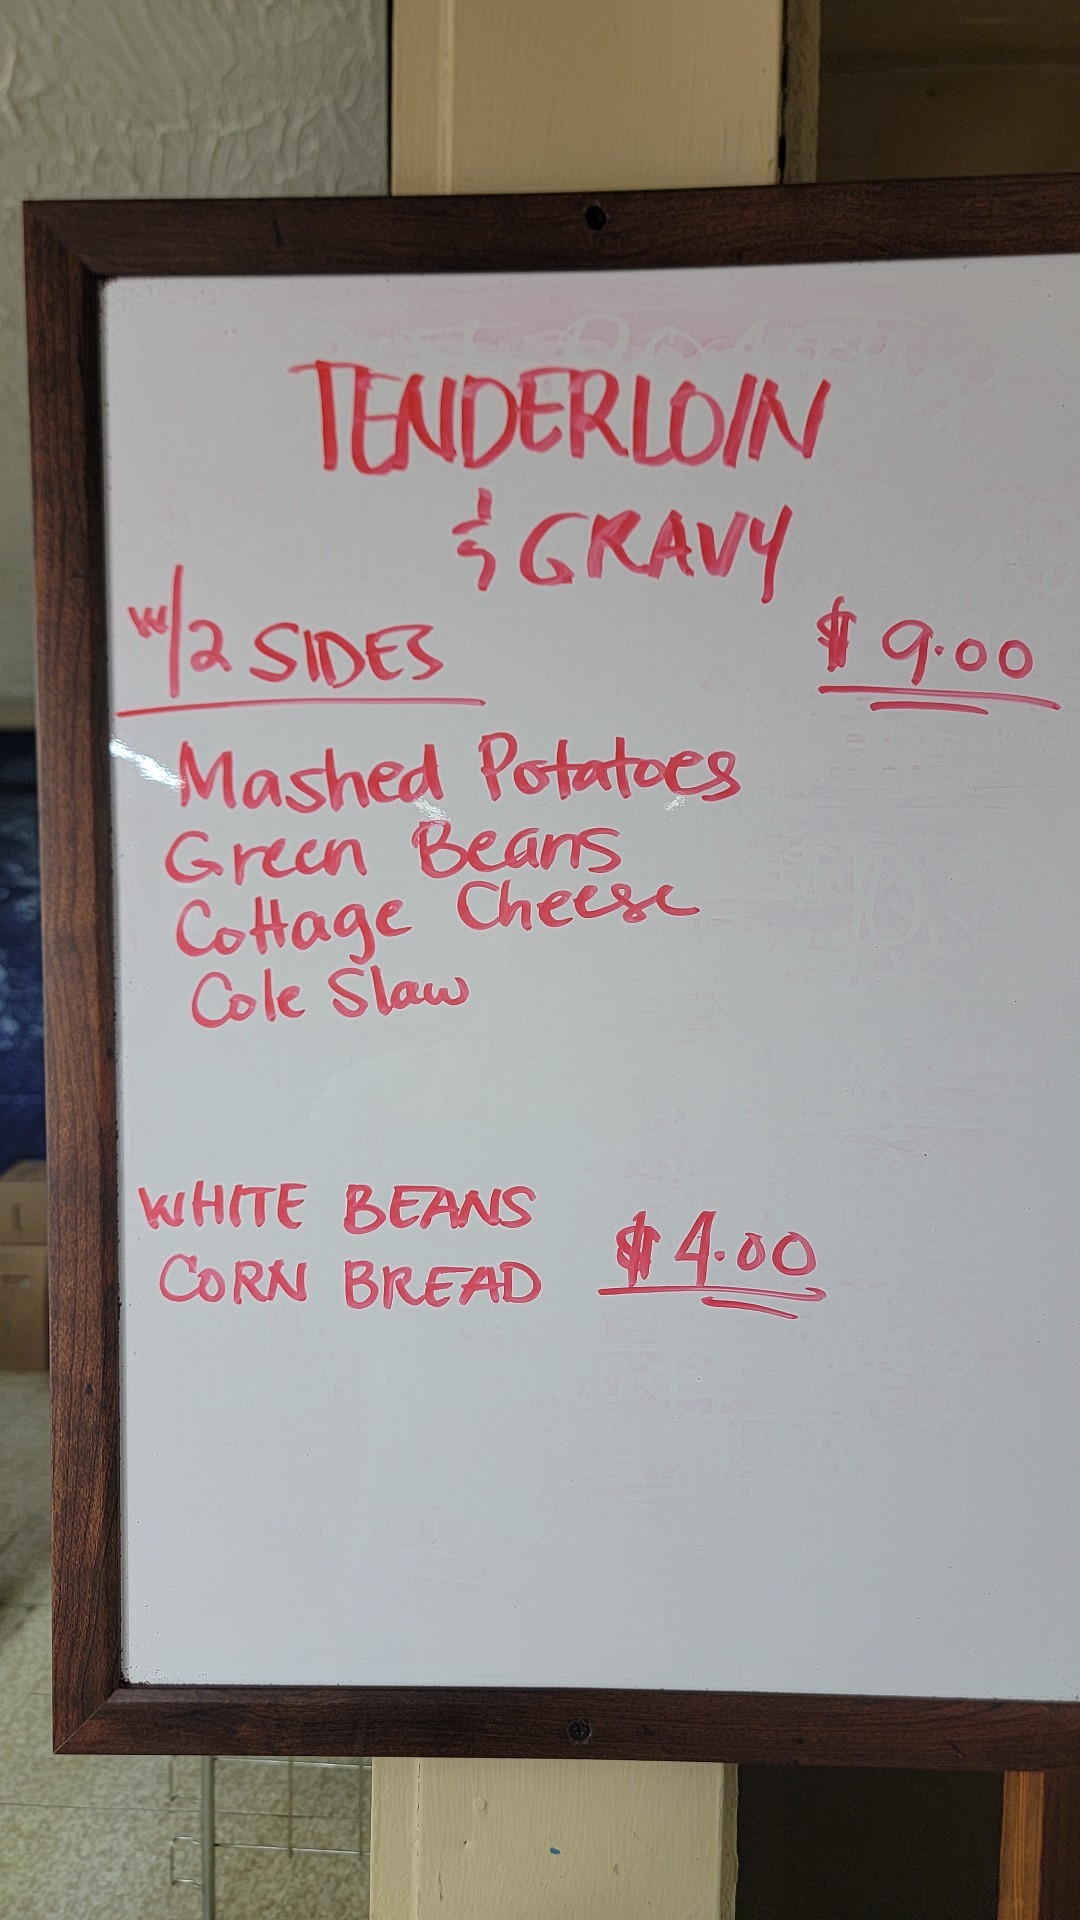 TENDERLOIN
& GRAVY
w/2 SIDES $ 9.00
Mashed Potatoes
Green Beans
Cottage Cheese
Cole Slaw
WHITE BEANS
CORN BREAD $ 4.00